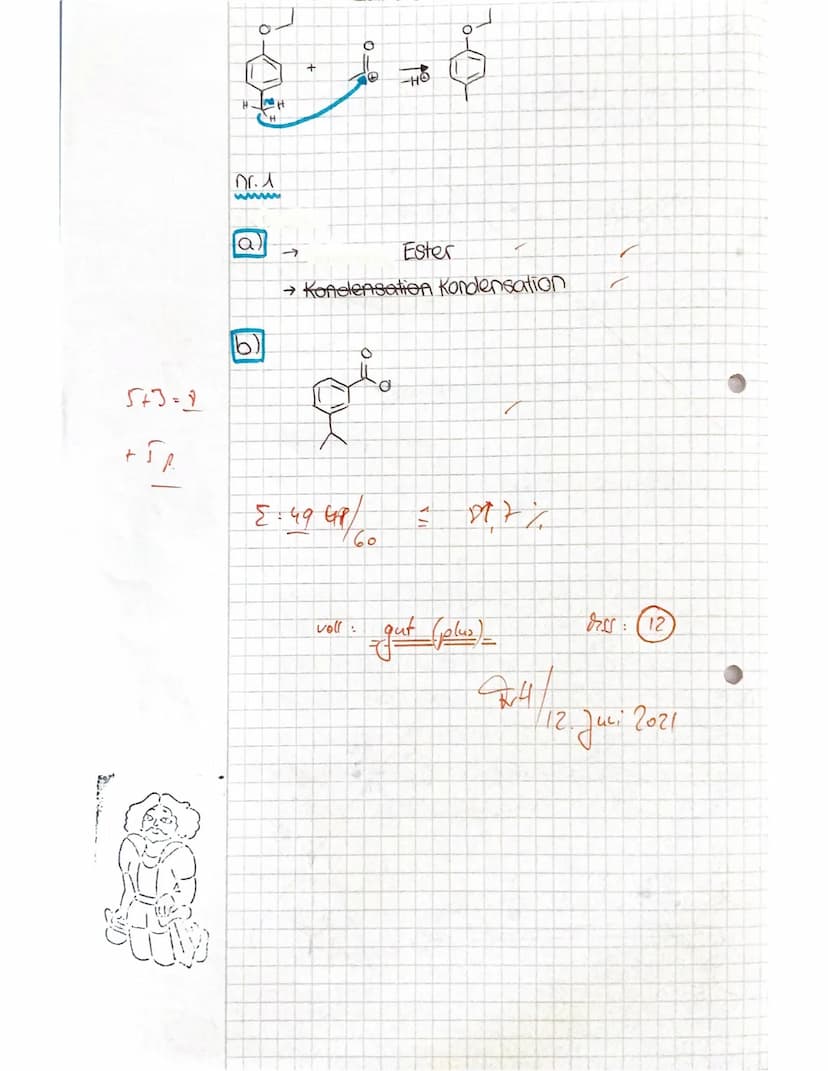 Nr. 1
a)
→ Ester
→ Kondensation Kondensation
b)
5+3=8
+ 5 P.
Σ: 49 /60 ≙ 81,7 %
voll: gut (plus)
12
12. Juli 2021